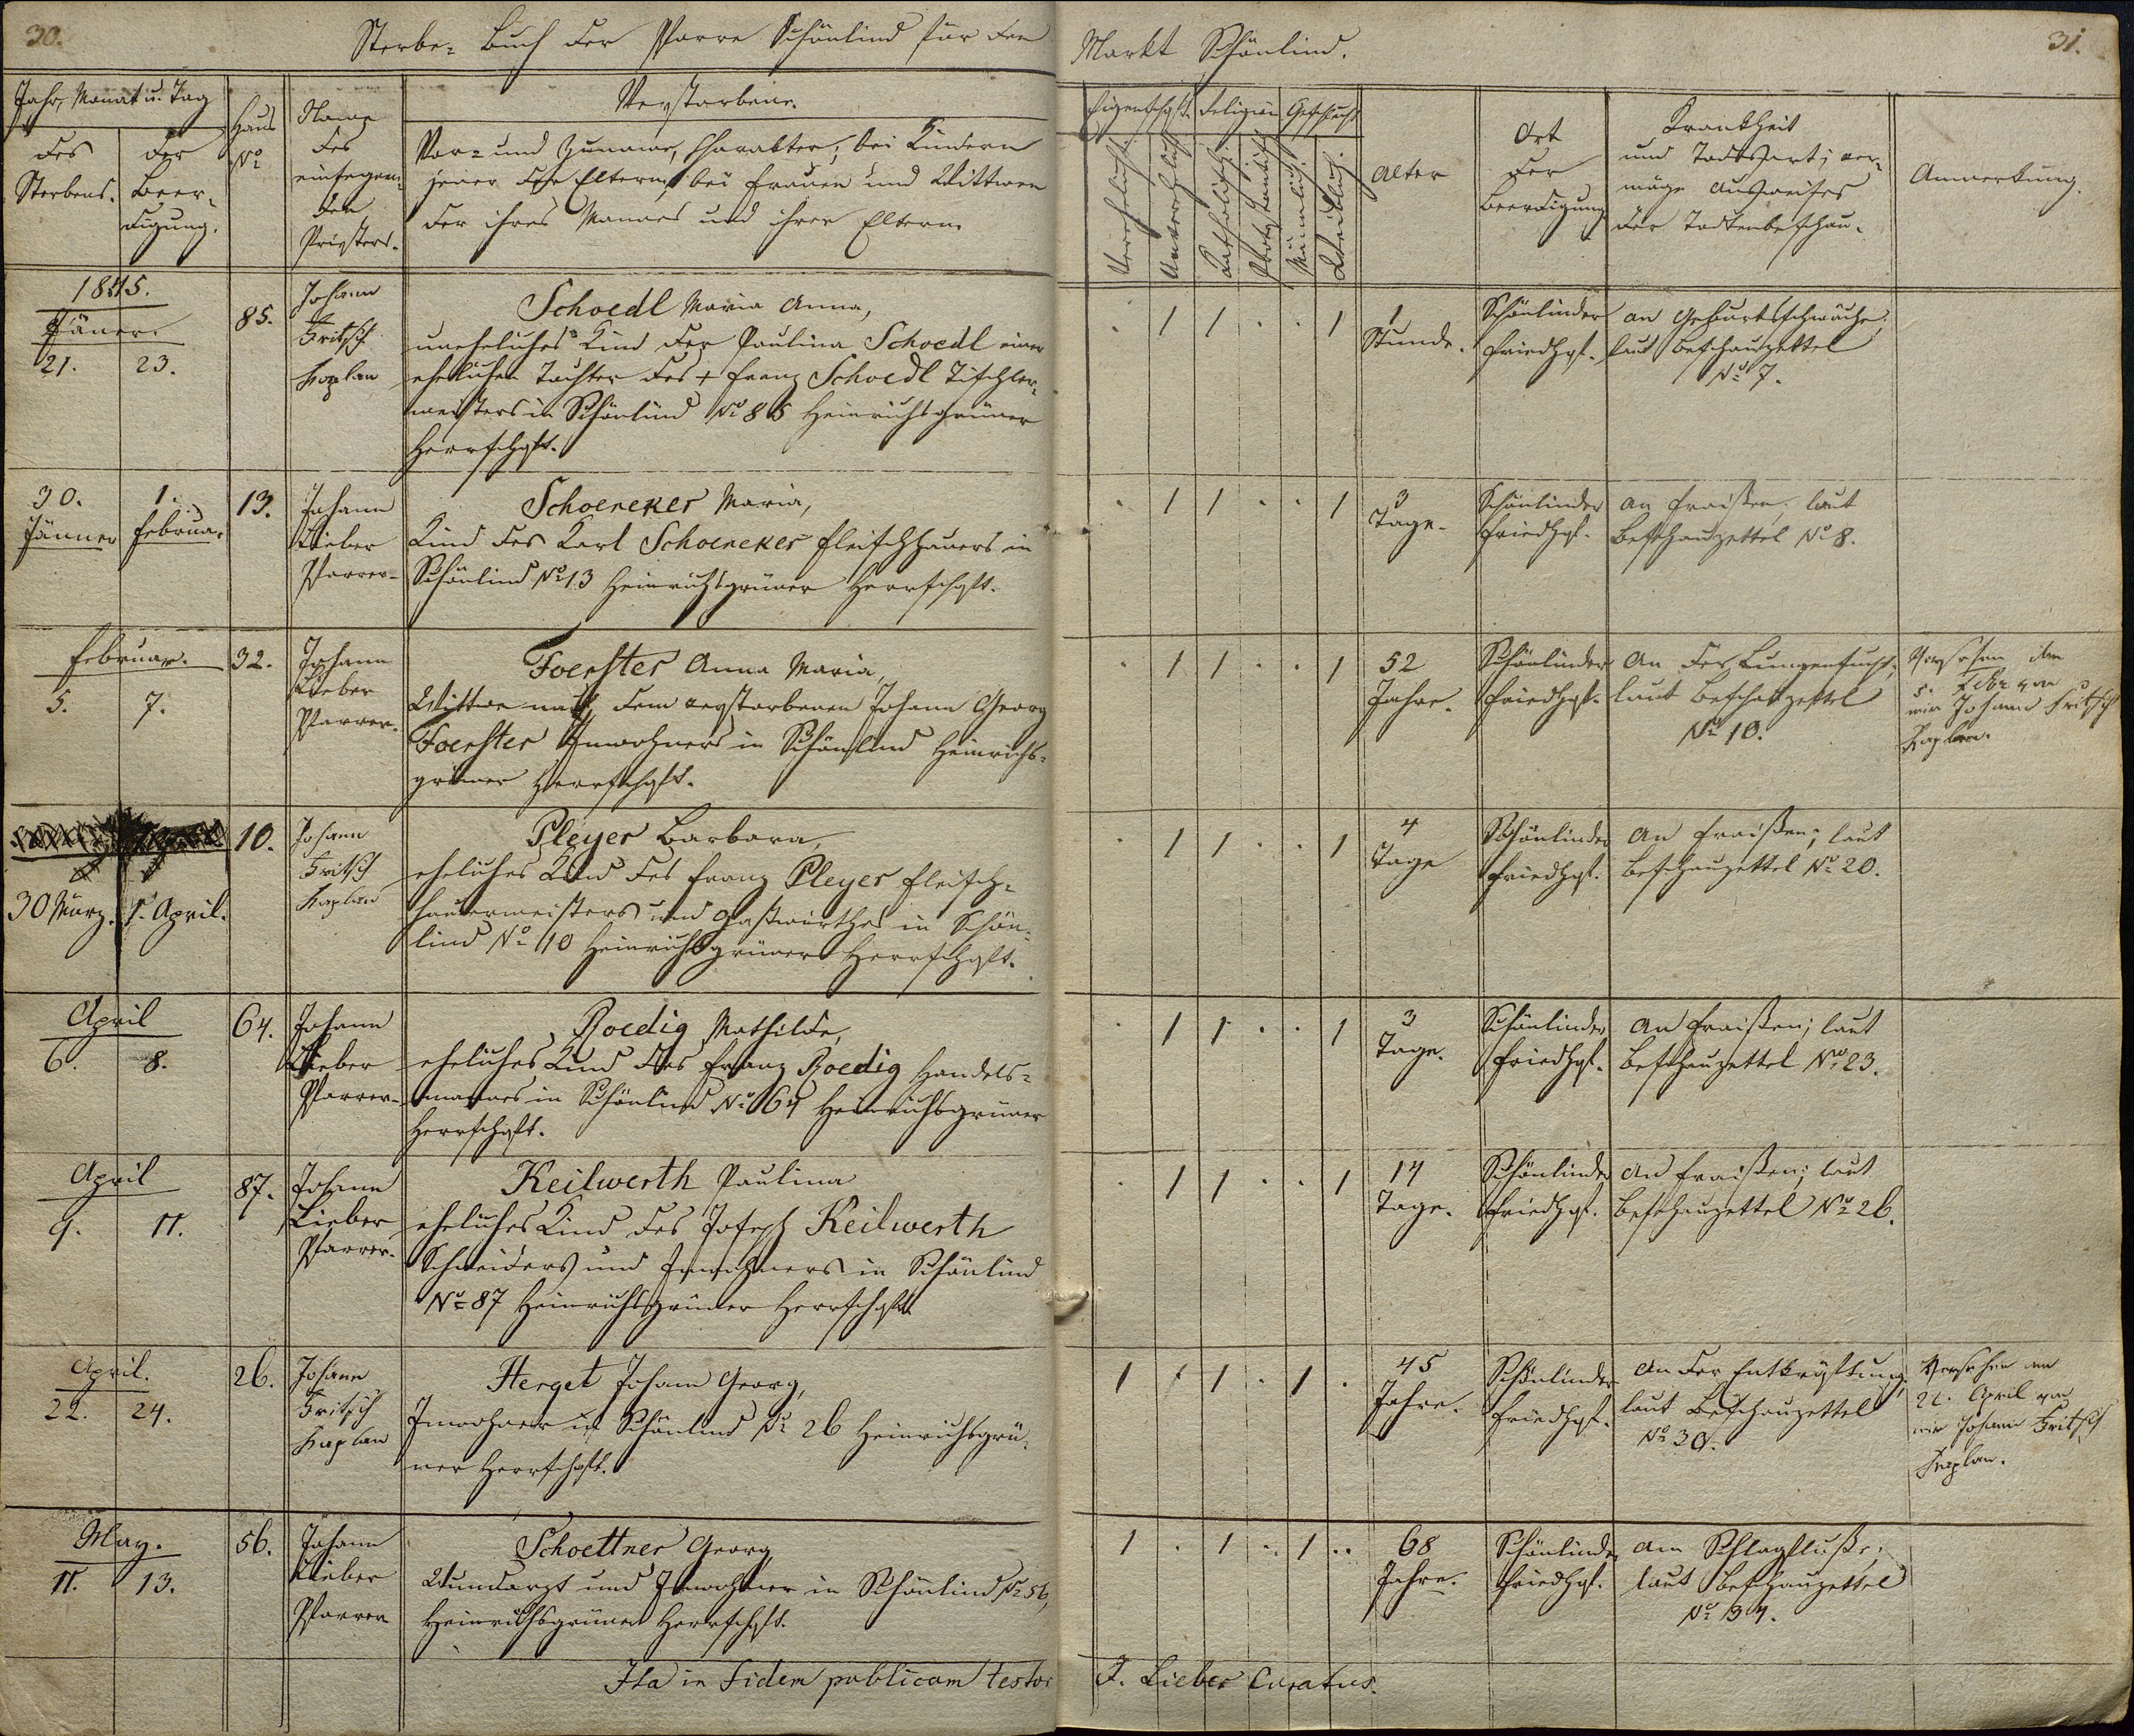 30.
Sterbe- Buch der Pfarre Schönlind für den Markt Schönlind.
31.
Jahr, Monat u. Tag
des Sterbens.
der Beer-
digung.
Haus
No
Name
des
einsegnen-
den
Priesters.
Verstorbene.
Vor- und Zuname, Charakter; bei Kindern
jener der Eltern, bei Frauen und Wittwen
der ihres Mannes und ihrer Eltern.
Religion Geschlecht
Katholisch
Männlich.
Weiblich.
Alter
Ort
der
Beerdigung
Krankheit
und Todesart; ver-
möge Ausweises
der Todtenbeschau.
Anmerkung.
1845.
Jäner.
21. 23.
85.
Johann
Fritsch
Kaplan
Schoedl Maria Anna,
uneheliches Kind der Paulina Schoedl einer
ehelichen Tochter des + Franz Schoedl Tischler-
meisters in Schönlind No 85 Heinrichsgrüner
Herrschaft.
. 1 1 . . 1
1
Stunde.
Schönlinder
Friedhof.
an Geburtsschwäche;
laut Beschauzettel
No 7.
30.
Jänner
1.
Februar
13.
Johann
Lieber
Pfarrer.
Schoenecker Maria,
Kind des Karl Schoenecker Fleischhauers in
Schönlind No 13 Heinrichsgrüner Herrschaft.
. 1 1 . . 1
3
Tage.
Schönlinder
Friedhof.
an Fraißen; laut
Beschauzettel No 8.
Februar.
5. 7.
32.
Johann
Lieber
Pfarrer.
Foerster Anna Maria,
Wittwe nach dem verstorbenen Johann Georg
Foerster Inwohners in Schönlind Heinrichs-
grüner Herrschaft.
. 1 1 . . 1
52
Jahre.
Schönlinder
Friedhof.
An der Lungensucht;
laut Beschauzettel
No 10.
Versehen den
5. Feber von
mir Johann Fritsch
Kaplan.
30 März. 1. April.
10.
Johann
Fritsch
Kaplan
Pleyer Barbara,
eheliches Kind des Franz Pleyer Fleisch-
hauermeisters und Gastwirthes in Schön-
lind No 10 Heinrichsgrüner Herrschaft.
. 1 1 . . 1
4
Tage
Schönlinder
Friedhof.
An Fraißen; laut
Beschauzettel No 20.
April
6. 8.
64.
Johann
Lieber
Pfarrer.
Roedig Mathilde,
eheliches Kind des Franz Roedig Handels-
mannes in Schönlind No 64 Heinrichsgrüner
Herrschaft.
. 1 1 . . 1
3
Tage.
Schönlinder
Friedhof.
An Fraißen; laut
Beschauzettel No 23.
April
9. 11.
87.
Johann
Lieber
Pfarrer.
Keilwerth Paulina
eheliches Kind des Joseph Keilwerth
Schneiders und Inwohners in Schönlind
No 87 Heinrichsgrüner Herrschaft
. 1 1 . . 1
14
Tage.
Schönlinder
Friedhof.
An Fraißen; laut
Beschauzettel No 26.
April.
22. 24.
26.
Johann
Fritsch
Kaplan
Herget Johann Georg,
Inwohner in Schönlind No 26 Heinrichsgrü-
ner Herrschaft.
1 1 1 . 1 .
45
Jahre.
Schönlinder
Friedhof.
An der Entkräftung;
laut Beschauzettel
No 30.
Versehen am
22. April von
mir Johann Fritsch
Kaplan.
May.
11. 13.
56.
Johann
Lieber
Pfarrer
Schoettner Georg,
Wundarzt und Inwohner in Schönlind No 56,
Heinrichsgrüner Herrschaft.
1 . 1 . 1 .
68
Jahre.
Schönlinder
Friedhof.
Am Schlagfluße;
laut Beschauzettel
No 34.
Ita in fidem publicam testor J. Lieber Curatus.